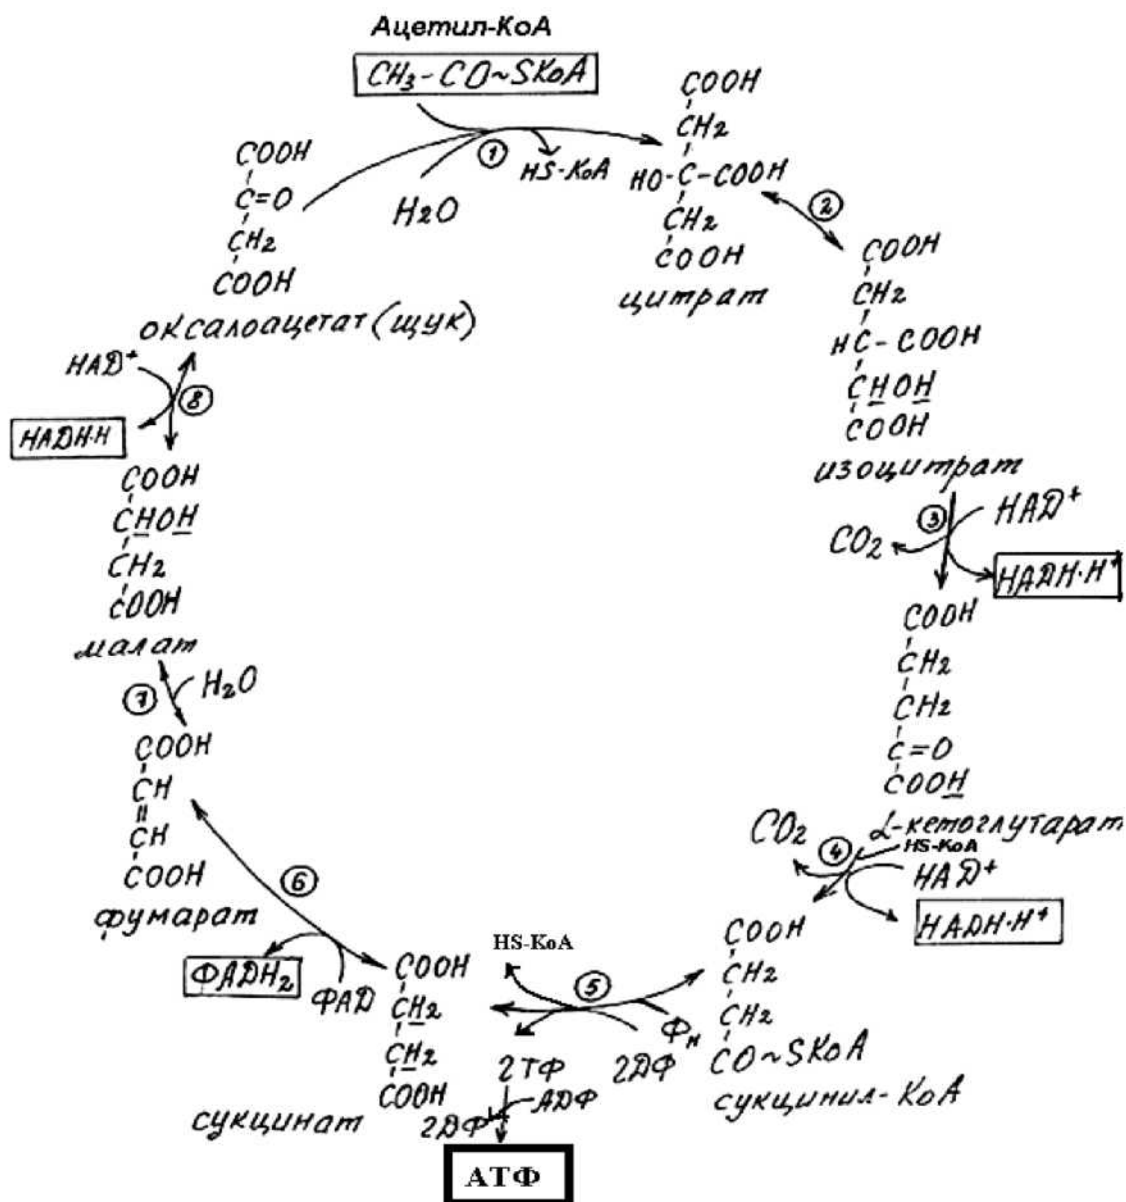 Ацетил-КоА
CH₃-CO~SKoA
①
HS-KoA
H₂O
COOH
C=O
CH₂
COOH
оксалоацетат (щук)
COOH
CH₂
HO-C-COOH
CH₂
COOH
цитрат
②
COOH
CH₂
HC-COOH
CHOH
COOH
изоцитрат
③
HAD⁺
CO₂
HADH·H⁺
COOH
CH₂
CH₂
C=O
COOH
α-кетоглутарат
④
HS-KoA
CO₂
HAD⁺
HADH·H⁺
COOH
CH₂
CH₂
CO~SKoA
сукцинил-КоА
⑤
HS-KoA
Фн
ГДФ
ГТФ
АДФ
ГДФ
АТФ
COOH
CH₂
CH₂
COOH
сукцинат
⑥
ФАД
ФАDH₂
COOH
CH
CH
COOH
фумарат
⑦
H₂O
COOH
CHOH
CH₂
COOH
малат
⑧
HAD⁺
HADH·H